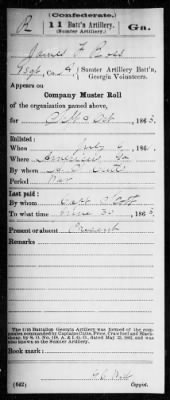 (Confederate.)
R 11 Batt'n Artillery. Ga.
(Sumter Artillery.)
James F. Ross
Sgt, Co. A, Sumter Artillery Batt'n,
Georgia Volunteers.
Company Muster Roll
of the organization named above,
for & Oct, 1863.
Enlisted:
When July 6, 186
Where Americus Ga
By whom A. S. Cutts
Period War
Last paid:
By whom Capt
To what time June 30, 1863.
Present or absent Present
Remarks:
The 11th Battalion Georgia Artillery was formed of the companies commanded by Captains Cutts, Price, Crawford and Blackshear, by S. O. No. , A. & I. G. O., dated May 22, 1862, and was also known as the Sumter Artillery.
Book mark:
(642) Copyist.